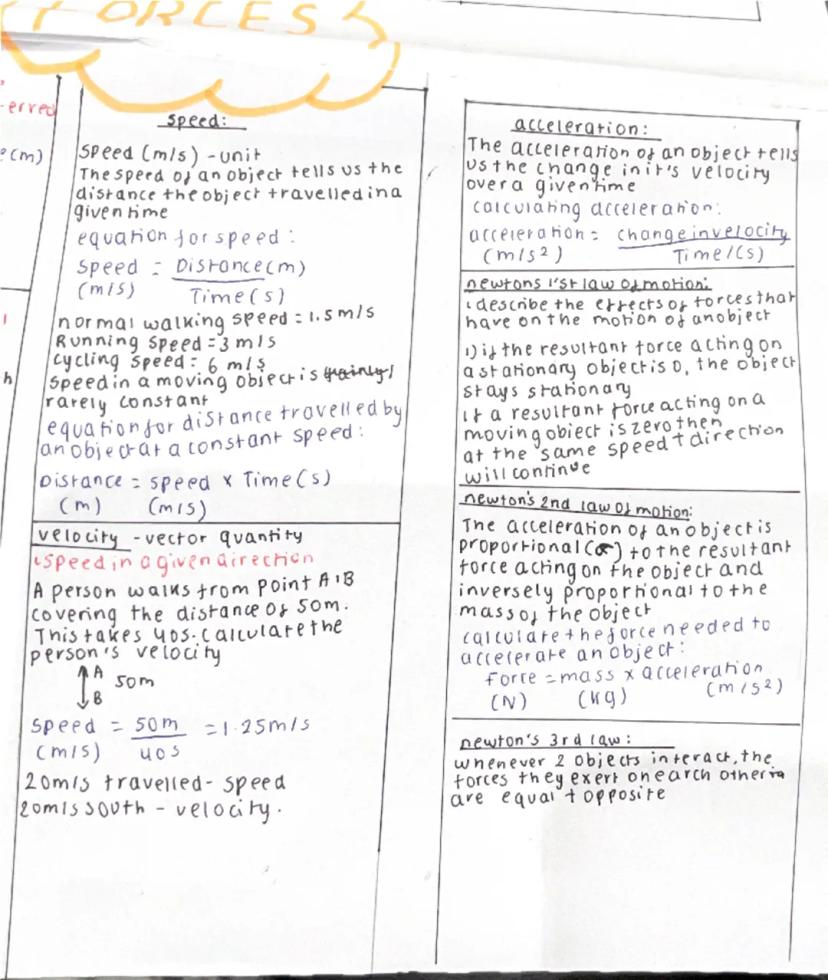 FORCES
-erred
e(cm)
h
speed:
speed (m/s) - unit
The speed of an object tells us the
distance the object travelled in a
given time
equation for speed:
speed = Distance(m)
(m/s) Time(s)
normal walking speed = 1.5 m/s
Running speed = 3 m/s
cycling speed: 6 m/s
speed in a moving object is
rarely constant
equation for distance travelled by
an object at a constant speed:
Distance = speed x Time(s)
(m) (m/s)
velocity - vector quantity
speed in a given direction
A person walks from point A:B
covering the distance of 50m.
This takes 40s. calculate the
person's velocity
A
50m
B
speed = 50m = 1.25m/s
(m/s) 40s
20m/s travelled - speed
20m/s south - velocity.
acceleration:
The acceleration of an object tells
us the change in it's velocity
over a given time
calculating acceleration:
acceleration = change in velocity
(m/s²) Time/(s)
newtons 1'st law of motion:
describe the effects of forces that
have on the motion of an object
1) if the resultant force acting on
a stationary object is 0, the object
stays stationary
if a resultant force acting on a
moving object is zero then
at the same speed + direction
will continue
newton's 2nd law of motion:
The acceleration of an object is
proportional (∝) to the resultant
force acting on the object and
inversely proportional to the
mass of the object
calculate the force needed to
accelerate an object:
force = mass x acceleration
(N) (kg) (m/s²)
newton's 3rd law:
whenever 2 objects interact, the
forces they exert on earch other
are equal + opposite